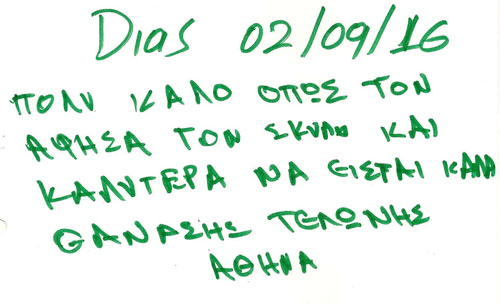 Dias 02/09/16
ΠΟΛΥ ΚΑΛΟ ΟΠΩΣ ΤΟΝ
ΑΦΗΣΑ ΤΟΝ ΣΚΥΛΟ ΚΑΙ
ΚΑΛΥΤΕΡΑ ΝΑ ΕΙΣΤΑΙ ΚΑΛΑ
ΘΑΝΑΣΗΣ ΤΕΛΩΝΗΣ
ΑΘΗΝΑ